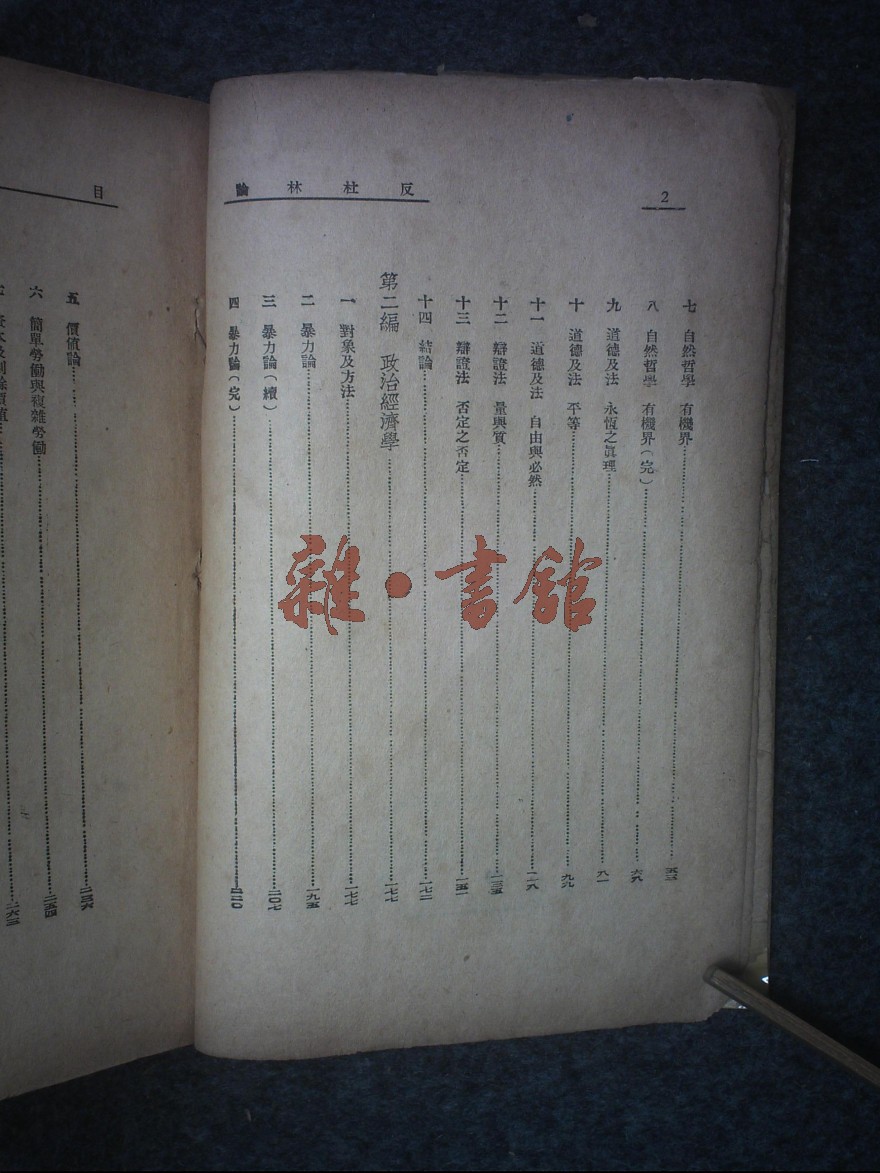 2
反杜林論
七 自然哲學 有機界……五三
八 自然哲學 有機界（完）……
九 道德及法 永恆之眞理……八一
十 道德及法 平等……九九
十一 道德及法 自由與必然……一一八
十二 辯證法 量與質……一三五
十三 辯證法 否定之否定……一五一
十四 結論……一七二
第二編 政治經濟學……一七七
一 對象及方法……一七七
二 暴力論……一九五
三 暴力論（續）……二〇七
四 暴力論（完）……二二〇
目
五 價值論……二三六
六 簡單勞働與複雜勞働……二五四
本及剩餘價值……二六三
雜·書館